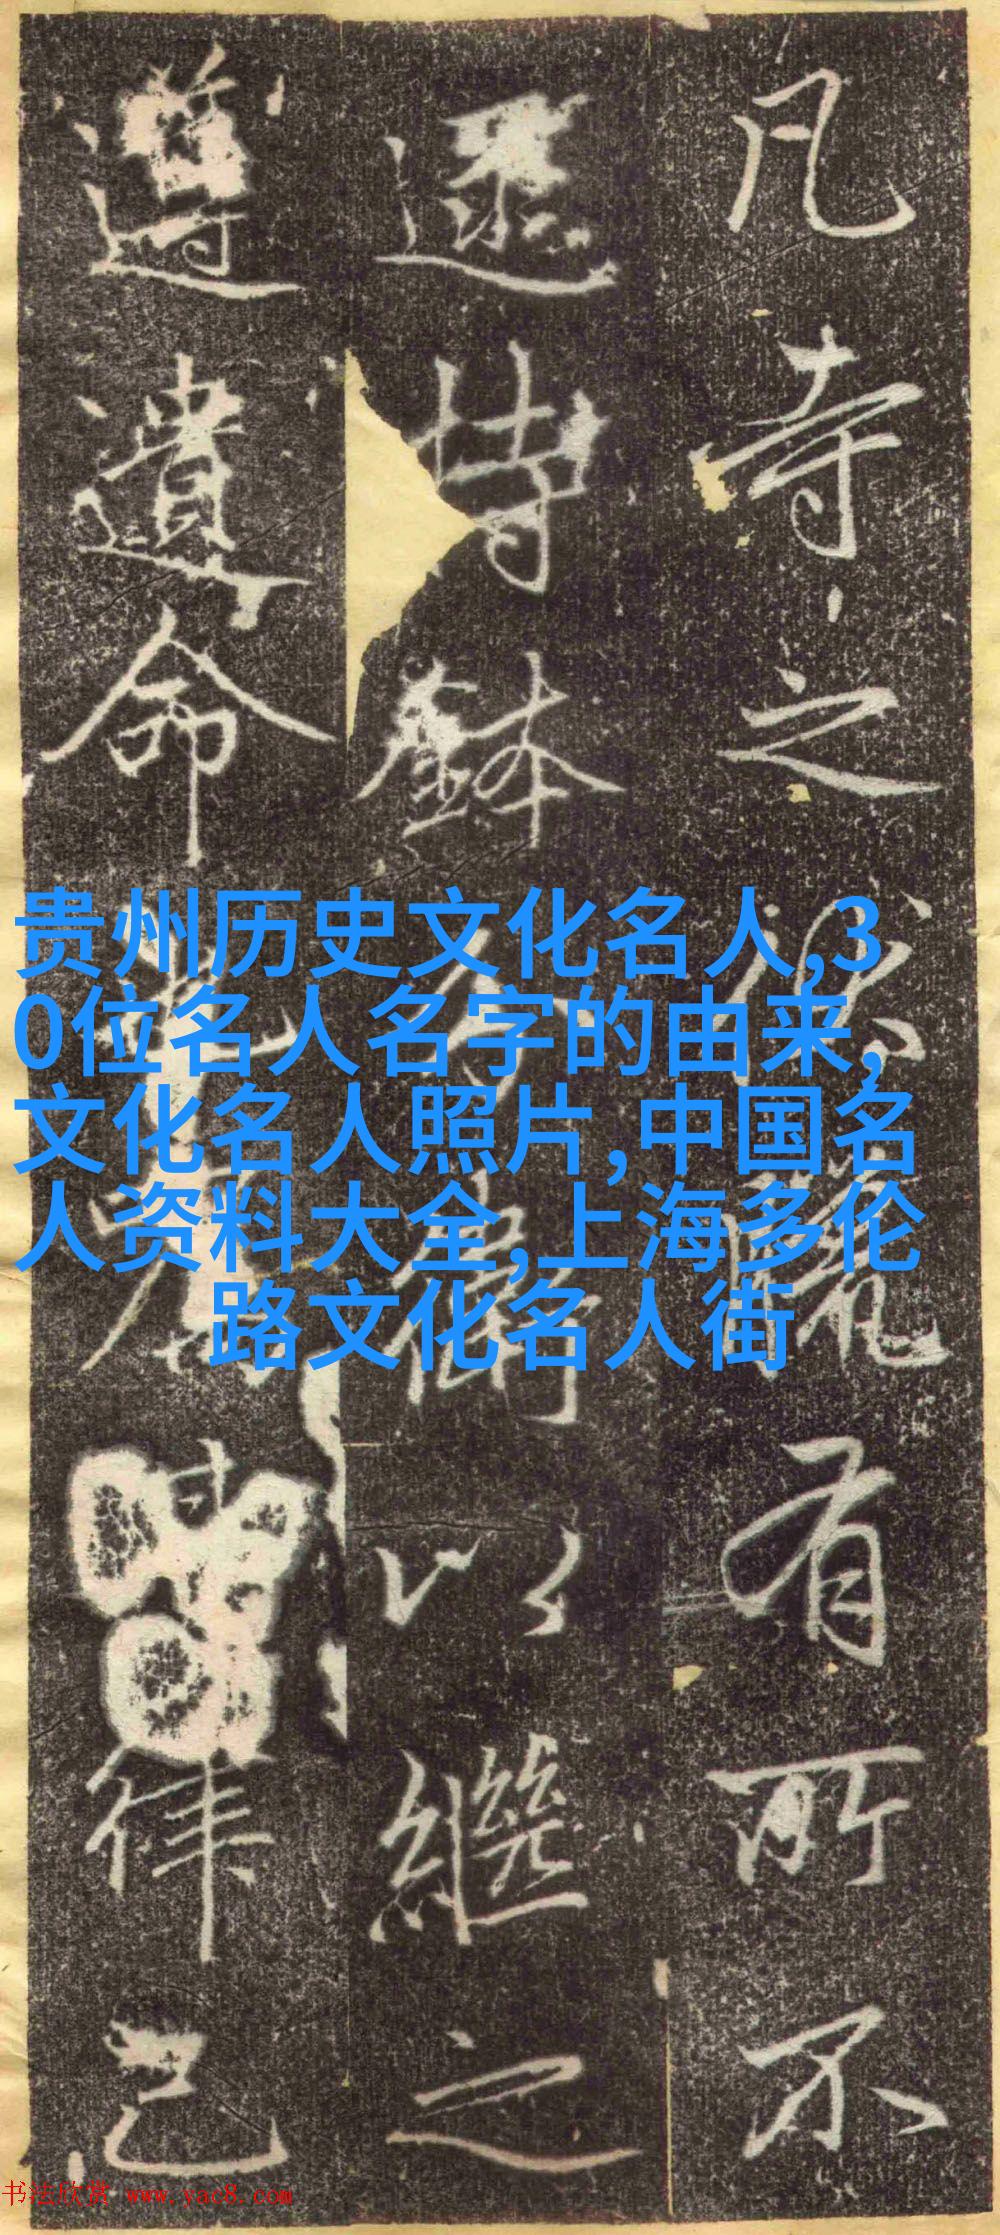 凡寺之
有所不
遝持鉢
以繼之
遵遺命
律己
贵州历史文化名人,3
0位名人名字的由来,
文化名人照片,中国名
人资料大全,上海多伦
路文化名人街
书法欣赏 www.yac8.com